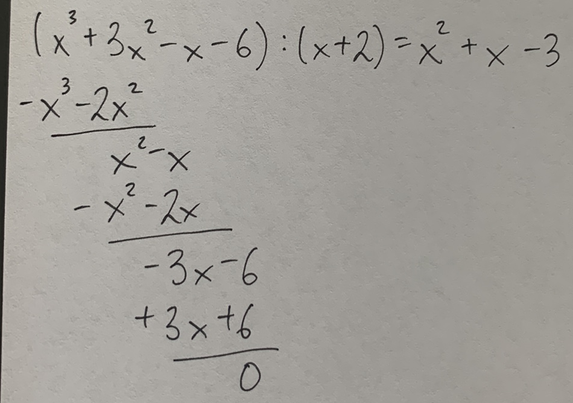 (x³ + 3x² - x - 6) : (x + 2) = x² + x - 3
- x³ - 2x²
x² - x
- x² - 2x
- 3x - 6
+ 3x + 6
0